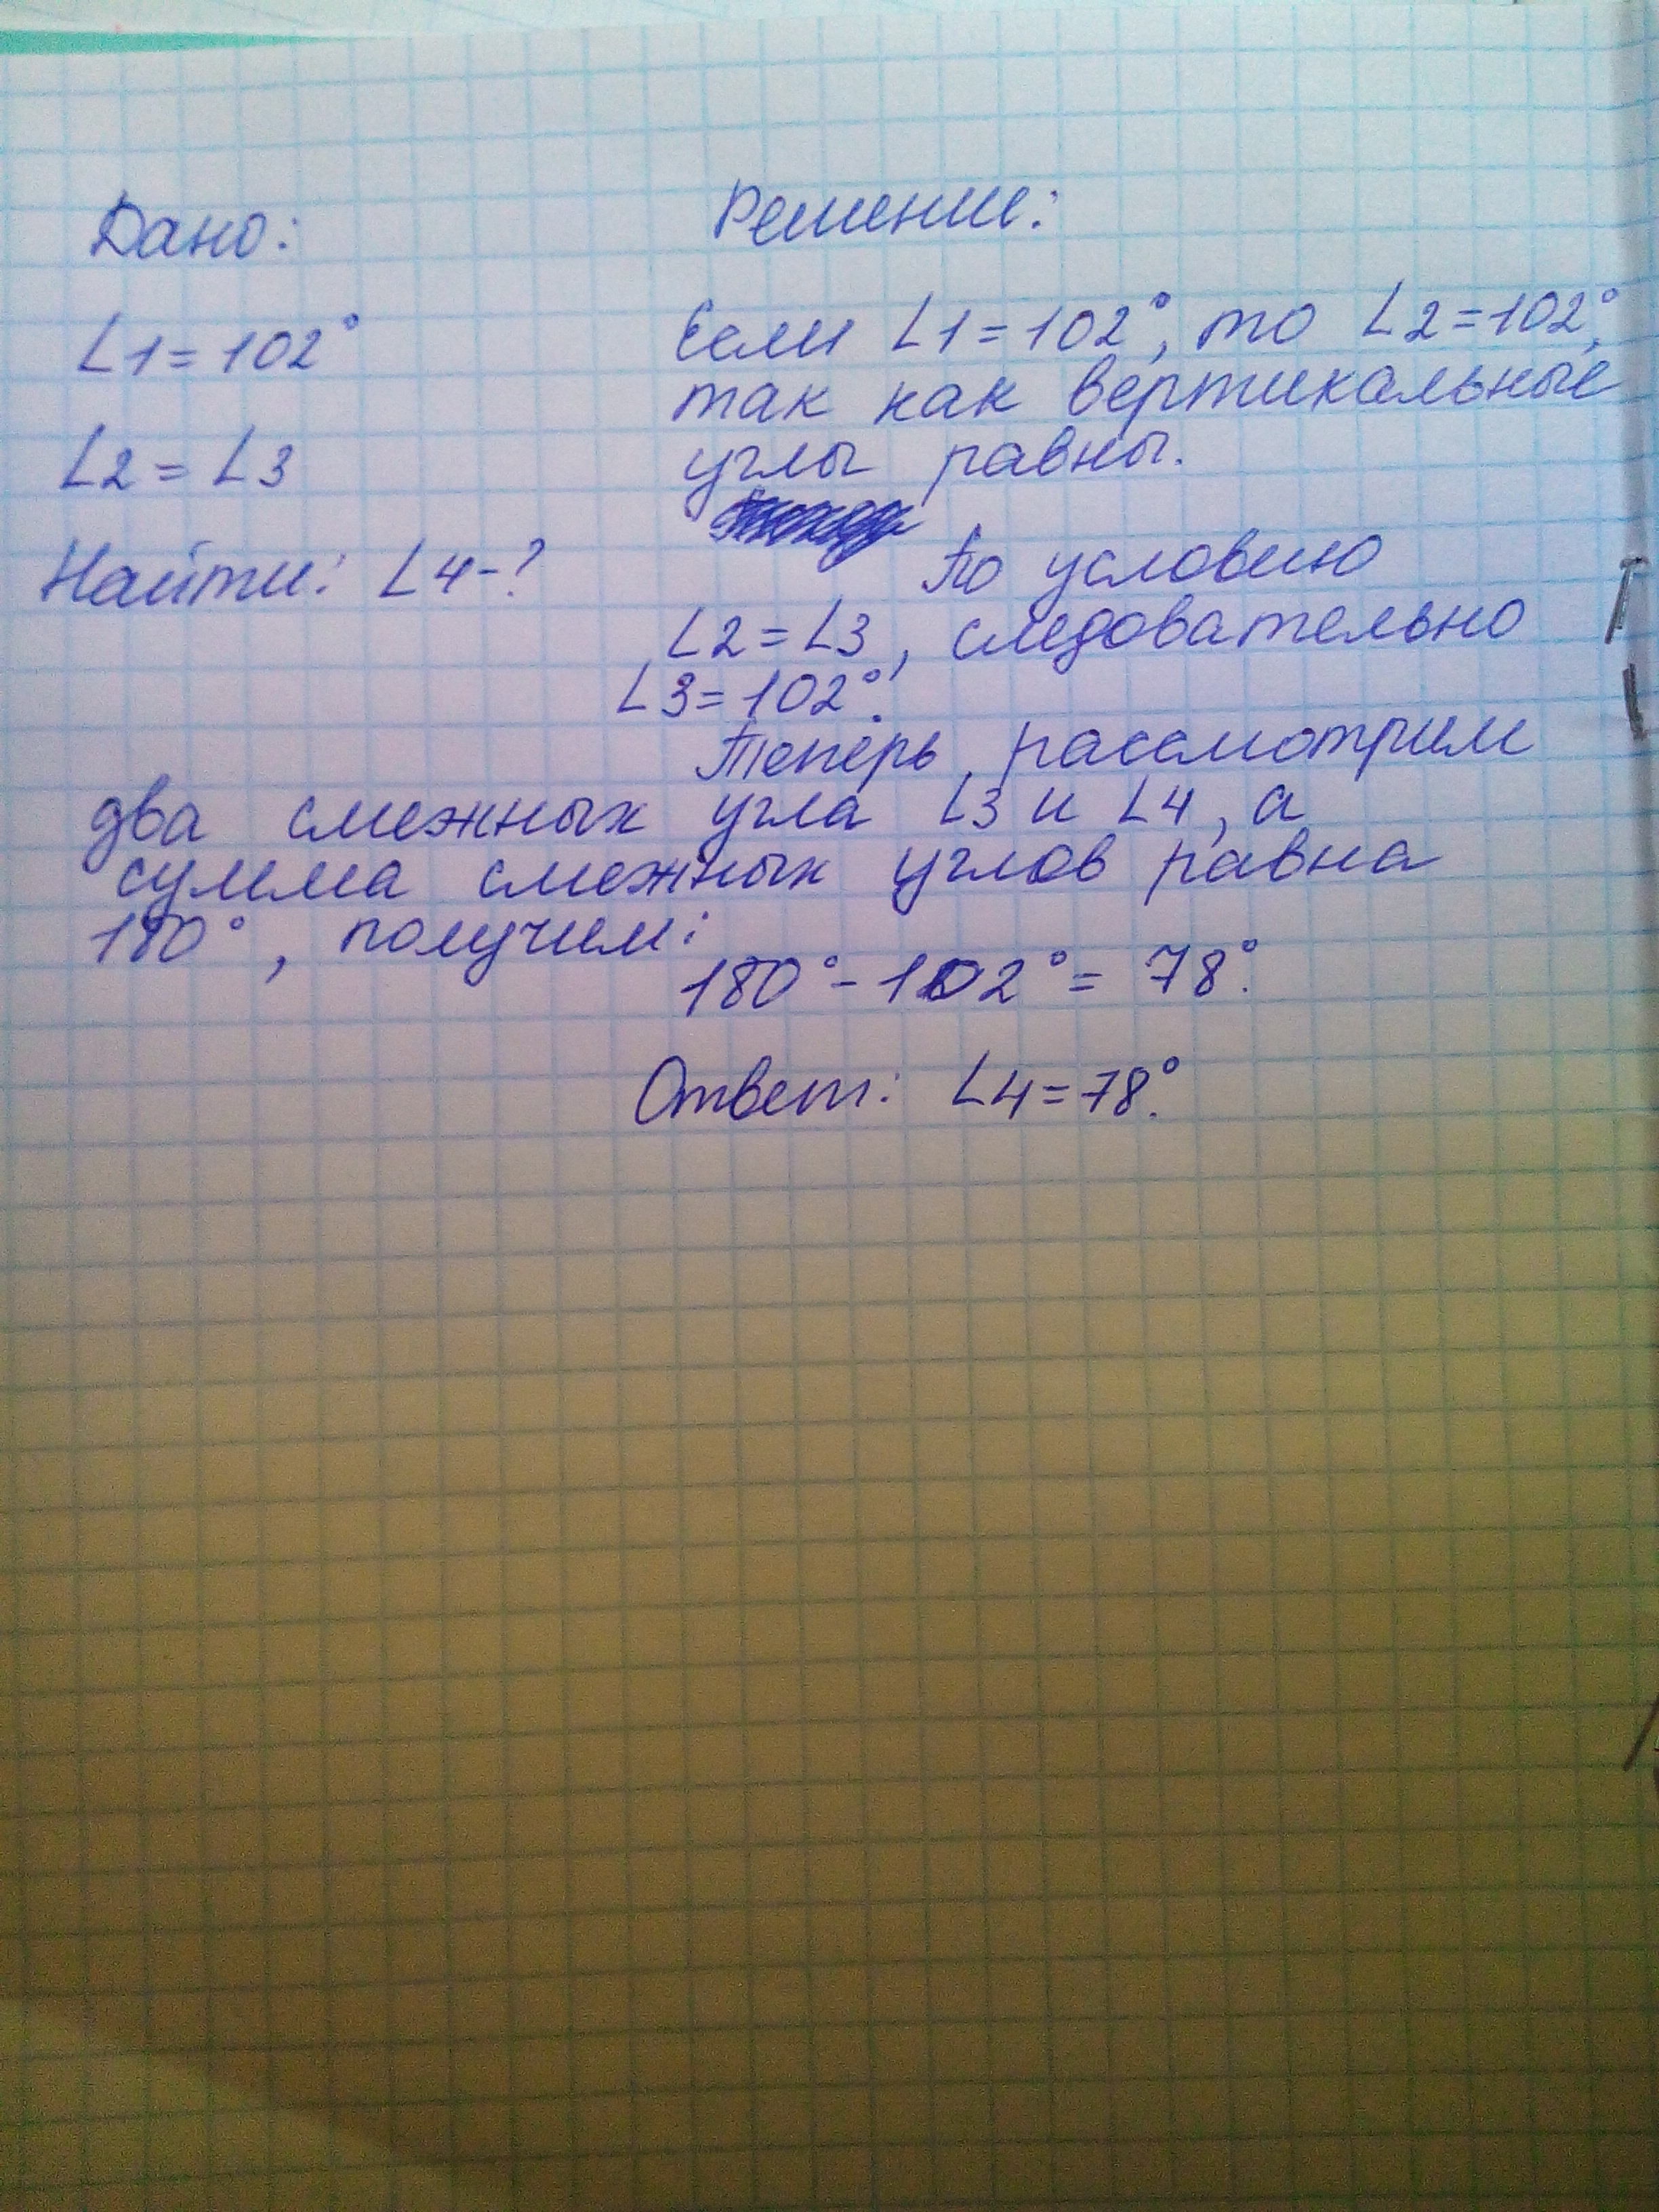 Дано:
∠1=102°
∠2=∠3
Найти: ∠4-?
Решение:
Если ∠1=102°, то ∠2=102°,
так как вертикальные
углы равны.
По условию
∠2=∠3, следовательно
∠3=102°.
Теперь, рассмотрим
два смежных угла ∠3 и ∠4, а
сумма смежных углов равна
180°, получим:
180°-102°= 78°.
Ответ: ∠4=78°.